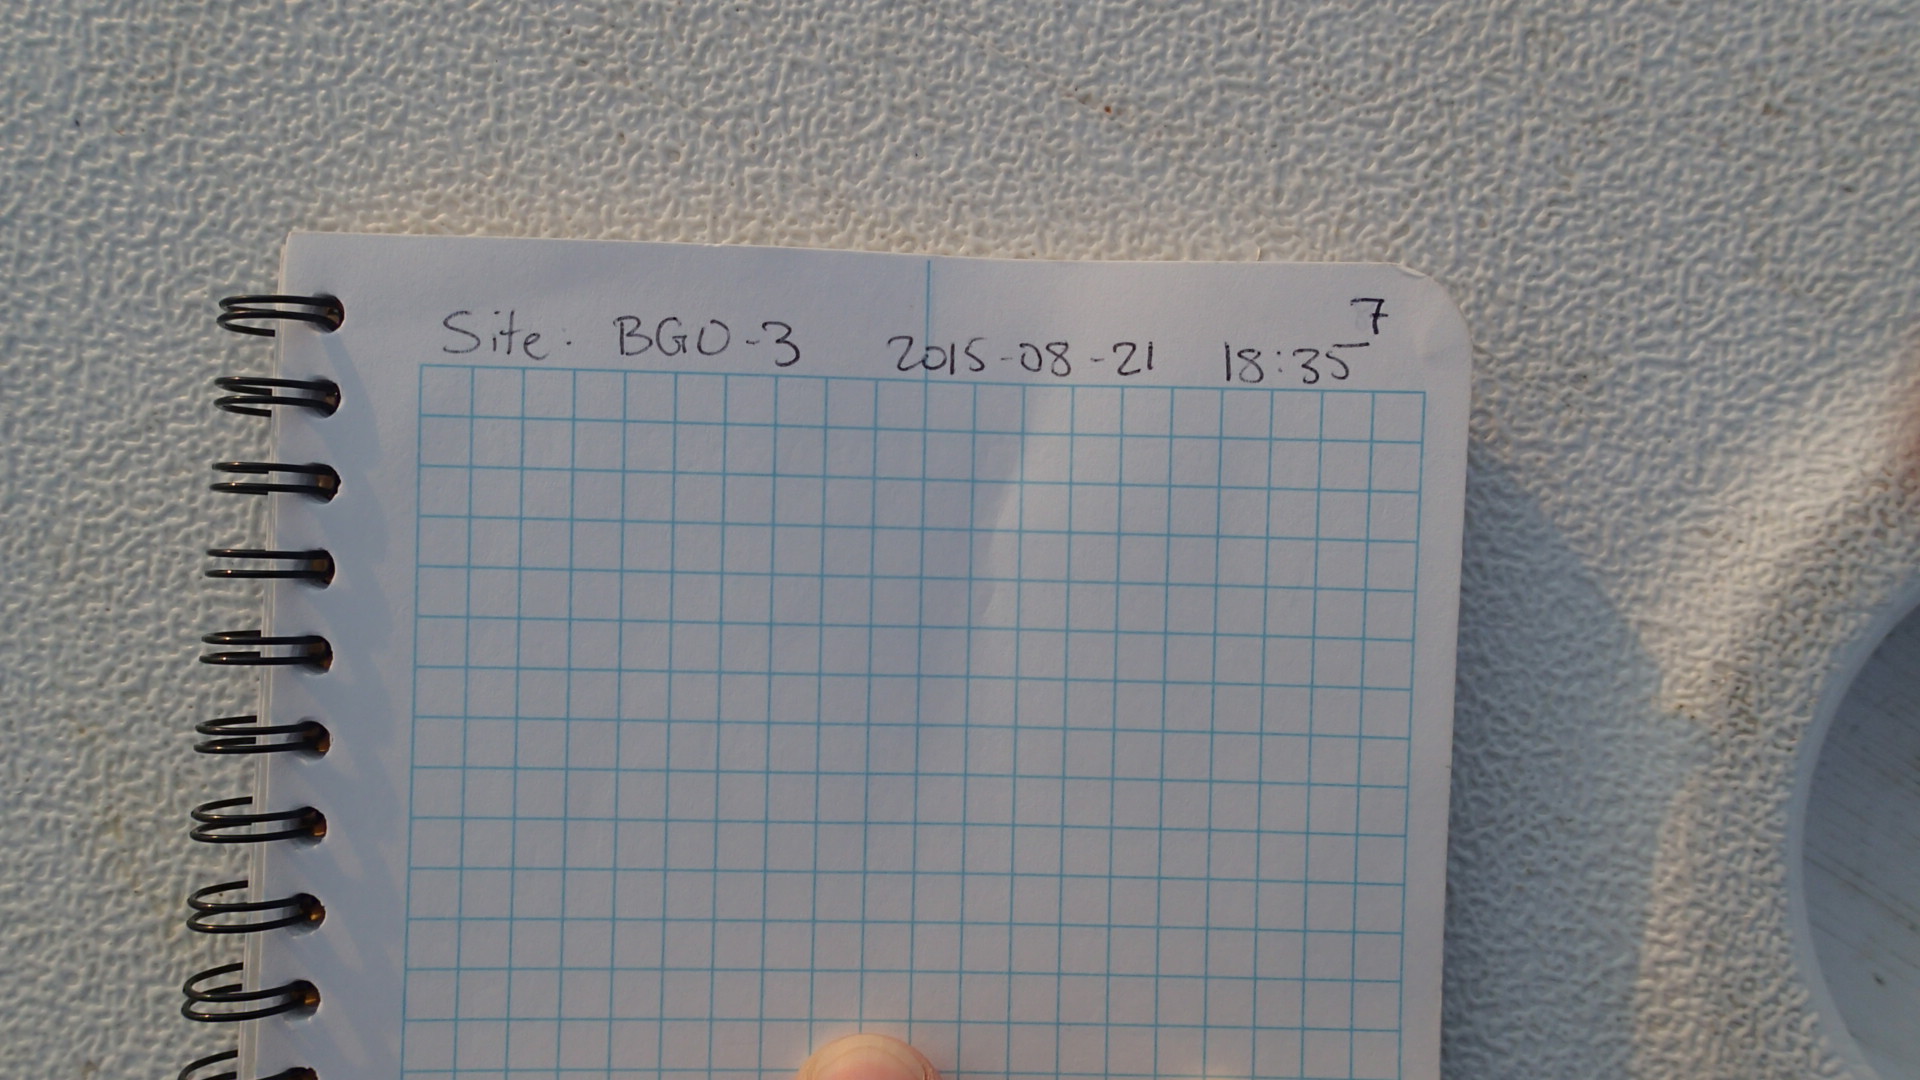 7
Site: BGO-3 2015-08-21 18:35